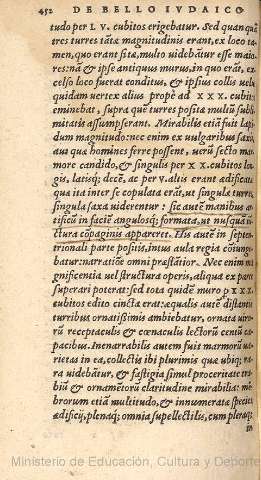 452 DE BELLO IVDAICO
tudo per L V. cubitos erigebatur. Sed quan quã
tres turres tãta magnitudinis erant, ex loco ta
men, quo erant sitæ, multo uidebãtur esse maio
res: nã & ipse antiquus murus, in quo erãt, ex
celso loco fuerat conditus, & ipsius collis uelut
quidam uertex altius propè ad X X X. cubitos
eminebat, supra quẽ turres posita multũ subli
mitatis assumpserant. Mirabilis etiã fuit lapi
dum magnitudo: nec enim ex uulgaribus saxis
aut qua homines ferre possent, uerũ secto mar
more candido, & singulis per X X. cubitos lon
gis, latisq; decẽ, ac per v. altis erant ædificatæ:
qua ita inter se copulata erãt, ut singulæ turres
singula saxa uiderentur: sic autẽ manibus ar
tificũ in faciẽ angulosq; formata, ut nusquã iũ
ctura cõpaginis appareret. His autẽ in septen
trionali parte positis, intus aula regia coniun
gebatur: narratiõne omni præstãtior. Nec enim ma
gnificentia uel structura operis, aliqua ex parte
superari poterat: sed tota quidẽ muro p X X X.
cubitos edito cincta erat: æqualis autẽ distantia
turribus ornatissimis ambiebatur, ornata uiro
rũ receptaculis & cœnaculis lectorũ centũ ca
pacibus. Inenarrabilis autem fuit marmorũ ua
rietas in ea, collectis ibi plurimis qua ubiq; ra-
ra uidebãtur, & fastigia simul proceritate tra
biũ & ornamẽtorũ claritudine mirabilia: mẽ
brorum etiã multitudo, & innumeratæ species
ædificij, plenaq; omnia supellectilis, cum plenaq;
Ministerio de Educación, Cultura y Deporte